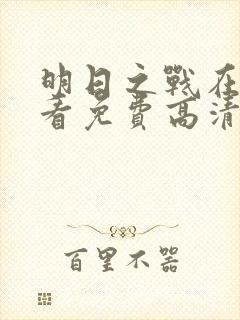 明日之戰在
看免費高清
百里不器